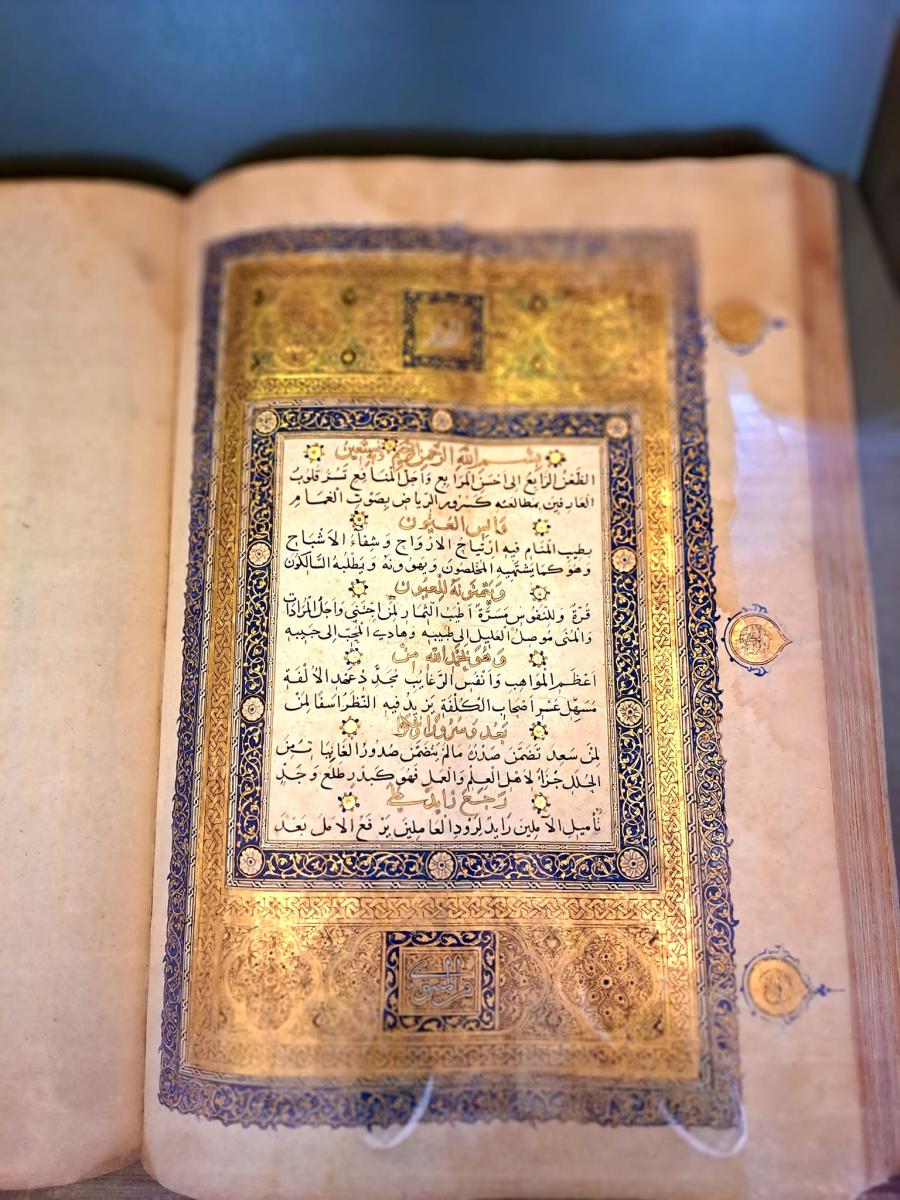 بِسْمِ اللهِ الرَّحْمنِ الرَّحِيمِ وَنَسْتَعِينُ
الظَّعْنُ الرَّابِعُ الى اَحْسَنِ المَرَابِعِ وَاَجَلِّ المَنَافِعِ تَسُرُّ قُلُوبَ
العَارِفِينَ بمُطالعته كَسُرورِ الرِّيَاضِ بِصَوْتِ الغمَامِ
وَاُنسِ العُيُونِ
بِطيبِ المَنَامِ فيه ارْتِيَاحُ الارْوَاحِ وَشِفَآءُ الاشْبَاحِ
وَهُوَ كمَا يَشْتَهِيهِ المُخْلِصُونَ وَيَهْوَوْنَهُ وَيَطلُبُهُ السَّالكُونَ
وَيَتَمَنَّوْنَهُ لِلْعُيُونِ
قُرَّةٌ وَللنُّفُوسِ مَسَرَّةٌ اَطيَبُ الثِّمَارِ لِمَنِ اجْتَنى وَاَجَلُّ المُرَادَاتِ
وَالمُنَى مُوصِلُ العَليلِ الى طَبيبِه وَهَادِي المُحِبِّ الى حَبِيبِه
وَهُوَ بحَمْدِ اللهِ مِنْ
اَعْظَمِ المَوَاهِبِ وَاَنْفَسِ الرَّغايِبِ مُجَدِّدُ عَهْدِ الاُلْفَةِ
مُسَهِّلُ عُسْرِ اَصْحَابِ الكُلْفَةِ يَزِيدُ فيهِ النَّظَرُ اَسَفًا لِمَنْ
بَعُدَ وَسُرُورًا وَشُكْرًا
لِمَنْ سَعِدَ تَضَمَّنَ صَدْرُهُ مَا لَمْ يَتَضَمَّنْ صُدُورُ الغَانِيَاتِ مِنَ
الحُلَلِ جَزَآءً لاهْلِ العِلْمِ وَالعَمَلِ فَهُوَ كَبَدْرٍ طَلَعَ وَجَدٍّ
رَجَعَ زَايِدٌ عَلى
تَأْمِيلِ الآمِلينَ رَايدٌ لِرَوْدِ العَامِلِينَ يَرْفَعُ الاَمَلَ بَعْدَ
من المثنوي